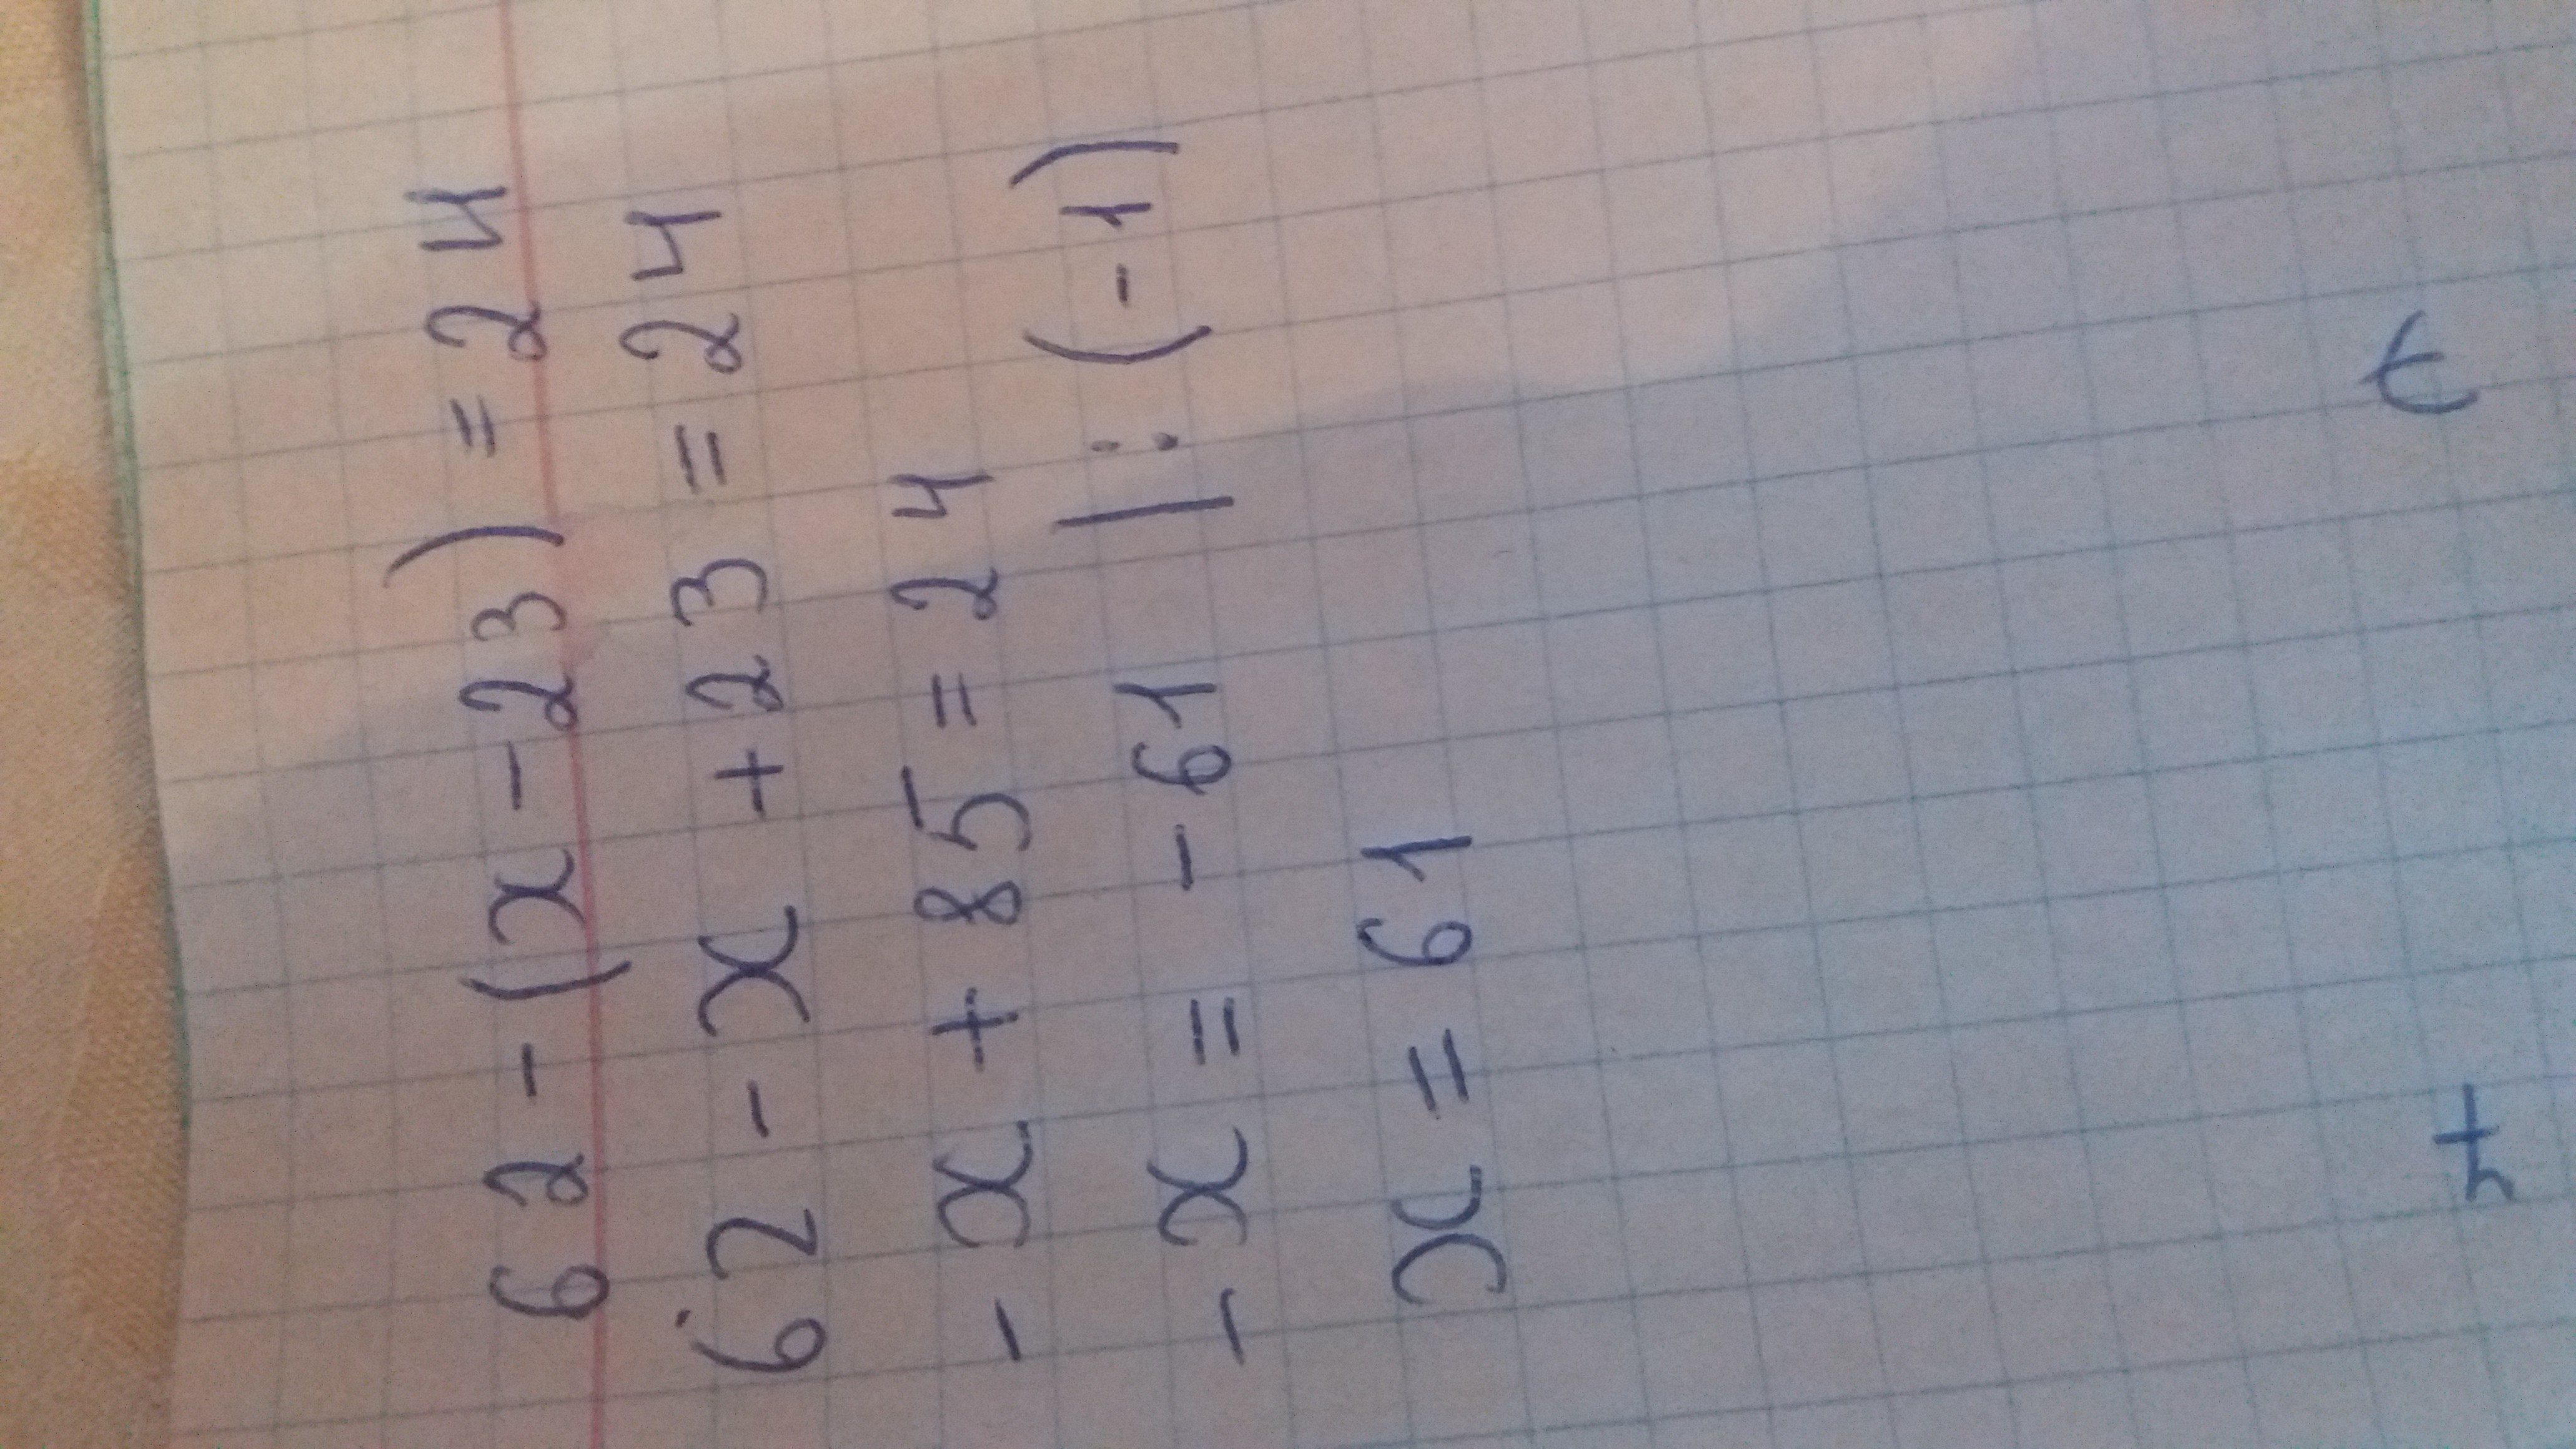 62 - (x - 23) = 24
62 - x + 23 = 24
- x + 85 = 24
- x = - 61 | : (-1)
x = 61